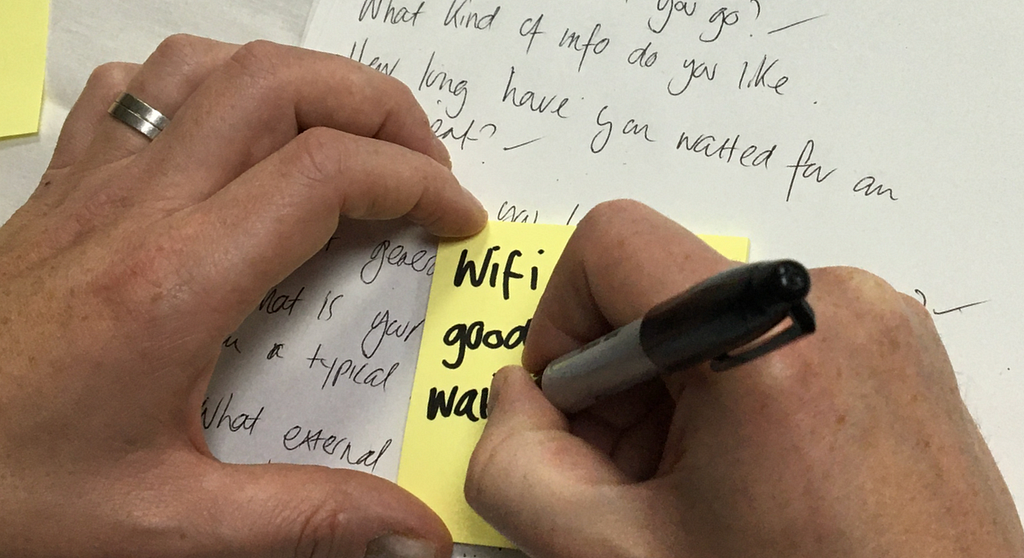 you go?
What kind of info do you like.
How long have you waited for an
?
you
What is your
a typical
What external
Wifi
good
wai